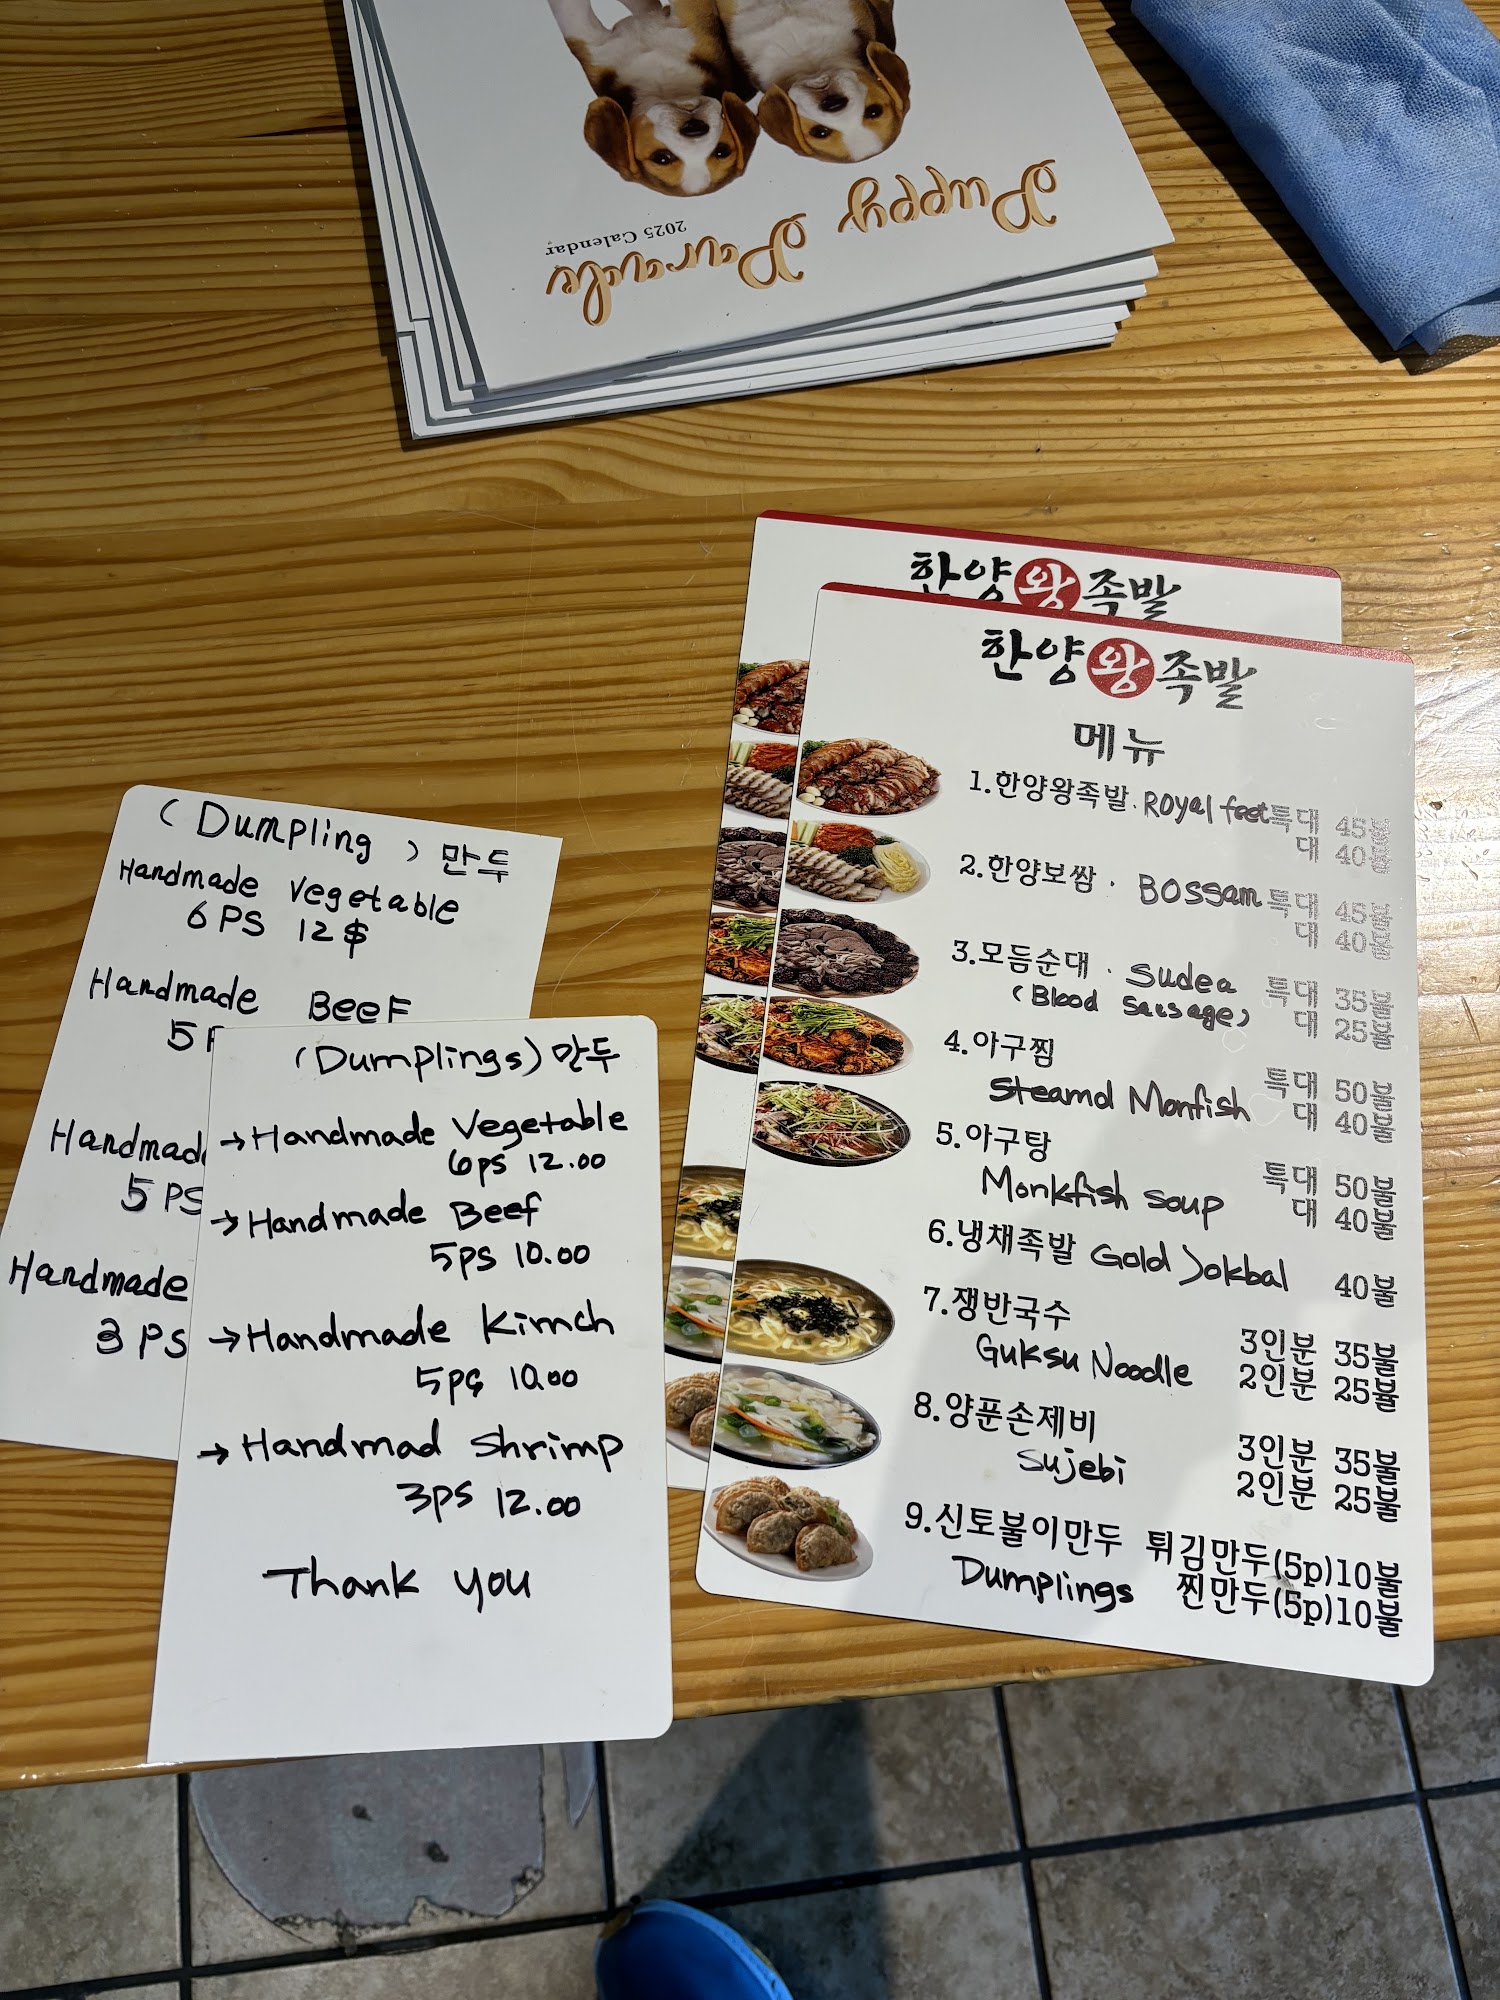 Puppy Parade
2025 Calendar
한양왕족발
한양왕족발
메뉴
1.한양왕족발. Royal feet 특대 45불
대 40불
2.한양보쌈. BOSSam 특대 45불
대 40불
3.모듬순대. Sudea 특대 35불
(Blood Sausage) 대 25불
4.아구찜 특대 50불
Steamd Monfish 대 40불
5.아구탕 특대 50불
Monkfish soup 대 40불
6.냉채족발 Gold Jokbal 40불
7.쟁반국수 3인분 35불
Guksu Noodle 2인분 25불
8.양푼손제비 3인분 35불
Sujebi 2인분 25불
9.신토불이만두 튀김만두(5p)10불
Dumplings 찐만두(5p)10불
(Dumpling) 만두
Handmade Vegetable
6PS 12$
Handmade BeeF
5P
Handmad
5PS
Handmade
3PS
(Dumplings) 만두
→Handmade Vegetable
6ps 12.00
→Handmade Beef
5ps 10.00
→Handmade Kimch
5ps 10.00
→Handmad Shrimp
3ps 12.00
Thank you